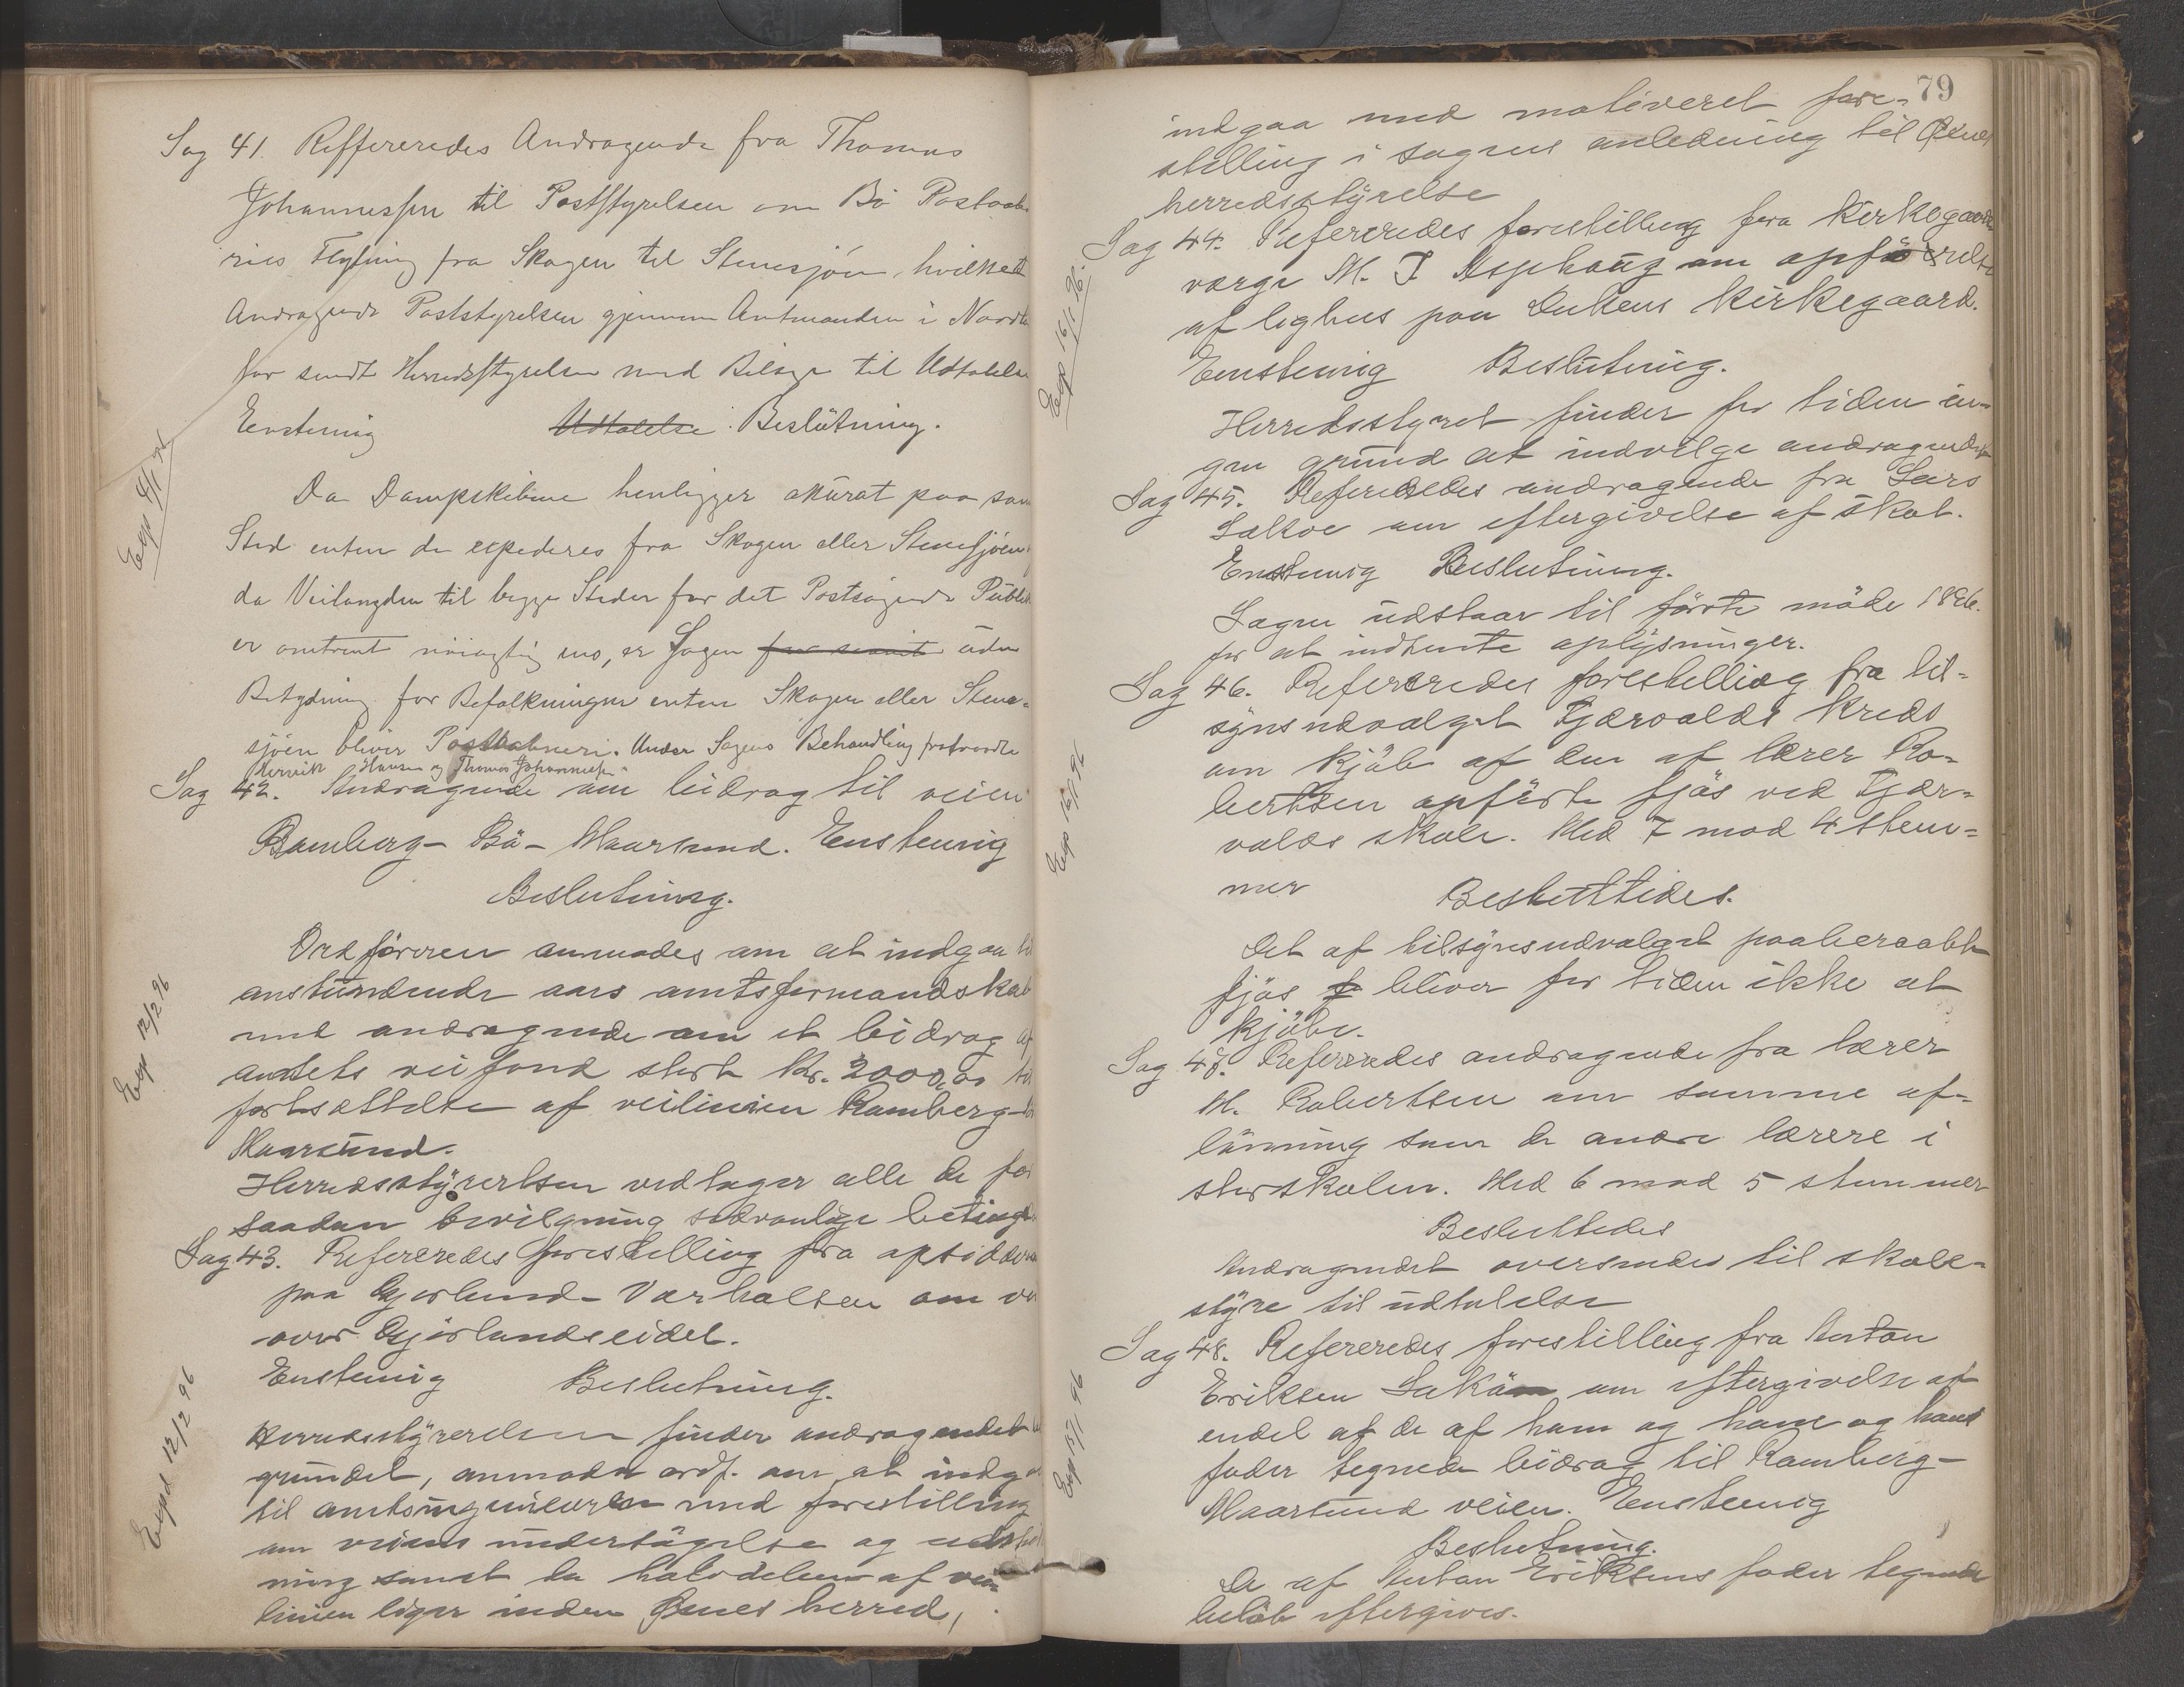 Sag 41. Reffereredes Andragende fra Thomas
Johannessen til Poststyrelsen om Bö Postaab
ries Flytning fra Skagen til Stenesjöen, hvilket
Andragende Poststyrelsen gjennem Amtmanden i Nordla
har sendt Herredsstyrelsen med Bilage til Udtalelse
Enstemig Udtalelse Beslutning.
Exp 4/1 96
Da Dampskibene henligger akurat paa sam
Sted enten de expederes fra Skagen eller Stenesjöen,
da Veilængden til begge Steder for det Postsögende Publik
er omtrent nöiagtig ens, er Sagen uden
Betydning for Befolkningen enten Skagen eller Stene-
sjöen bliver Postaabneri. Under Sagens Behandling fratraadte
Hansen og Thomas Johannessen
Sag 42. Andragende om bidrag til veien
Ramberg - Bö - Maarsund. Enstemig
Beslutning.
Exp 12/2 96
Ordföreren anmodes om at indgaa til
anstundende aars amtsformandskab
med andragende om et bidrag af
amtets veifond stort kr. 2000,00 til
fortsættelse af veilinien Ramberg-
Maarsund.
Herredsstyrelsen vedtager alle de for
saadan bevilgning sædvanlige beting
Sag 43. Refereredes forestilling fra opsiddern
paa Gjörlund - Varhalsen om ve
over Gjörlandseidet.
Enstemig Beslutning.
Expd 12/2 96
Herredsstyrelsen finder andragendet
grundet, anmoder ordf. om at indg
til amtsingeniören med forestilling
om veiens undersögelse og
ning samt da halvdelen af vei-
linien liger inden Öxnes herred,
79
indgaa med motiveret fore-
stilling i sagens anledning til Öxnes
herredsstyrelse
Sag 44. Refereredes forestilling fra kirkegaards
værge M. J. Asphaug om opförelse
af lighus paa kirkegaard.
Exp 16/1 96.
Enstemig Beslutning.
Herredsstyret finder for tiden in-
gen grund at indvilge andragendet
Sag 45. Refereredes andragende fra Lars
om eftergivelse af skat.
Enstemig Beslutning.
Sagen udstaar til förste möde 1896.
for at indhente oplysninger.
Sag 46. Refereredes forestilling fra til-
synsudvalget Fjærvolds kreds
om kjöb af den af lærer Ro-
bertsen opförte fjös ved Fjær-
volds skole. Med 7 mod 4 stem-
mer Besluttedes.
Exp 16/1 96
Det af tilsynsudvalget paaberaabte
fjös bliver for tiden ikke at
kjöbe.
Sag 47. Refereredes andragende fra lærer
M. Robertsen om samme af-
lönning som de andre lærere i
storskolen. Med 6 mod 5 stemmer
Besluttedes
Andragendet oversendes til skole-
styre til udtalelse
Sag 48. Refereredes forestilling fra Anton
Eriksen om eftergivelse af
endel af de af ham og hans og hans
fader tegnede bidrag til Ramberg-
Maarsund veien. Enstemig
Exp 13/1 96
Beslutning.
De af Anton Eriksens fader tegnede
belöb eftergives.